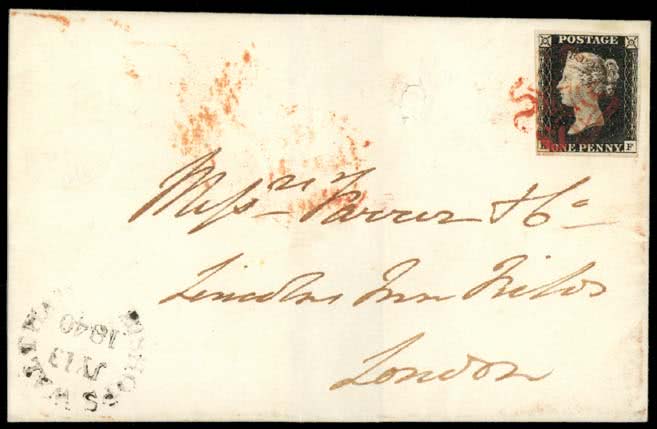 POSTAGE
ONE PENNY F
Messrs Farrer & Co
Lincolns Inn Fields
London
JY 13
1840